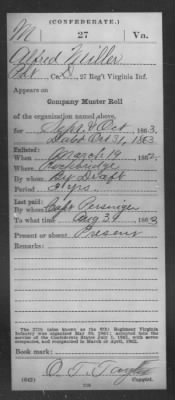 (CONFEDERATE.)
M 27 Va.
Alfred Miller
Pvt., Co. D, 27 Reg't Virginia Inf.
Appears on
Company Muster Roll
of the organization named above,
for Sept & Oct, 1863.
Dated Oct 31, 1863
Enlisted:
When March 19, 1862.
Where Rockbridge
By whom By Draft
Period 3 yrs.
Last paid:
By whom Capt Persinger
To what time Aug 31, 1863
Present or absent Present
Remarks:
The 27th (also known as the 6th) Regiment Virginia
Infantry was organized May 30, 1861; accepted into the
service of the Confederate States July 1, 1861, with seven
companies, and reorganized in
Book mark:
(642) Copyist.